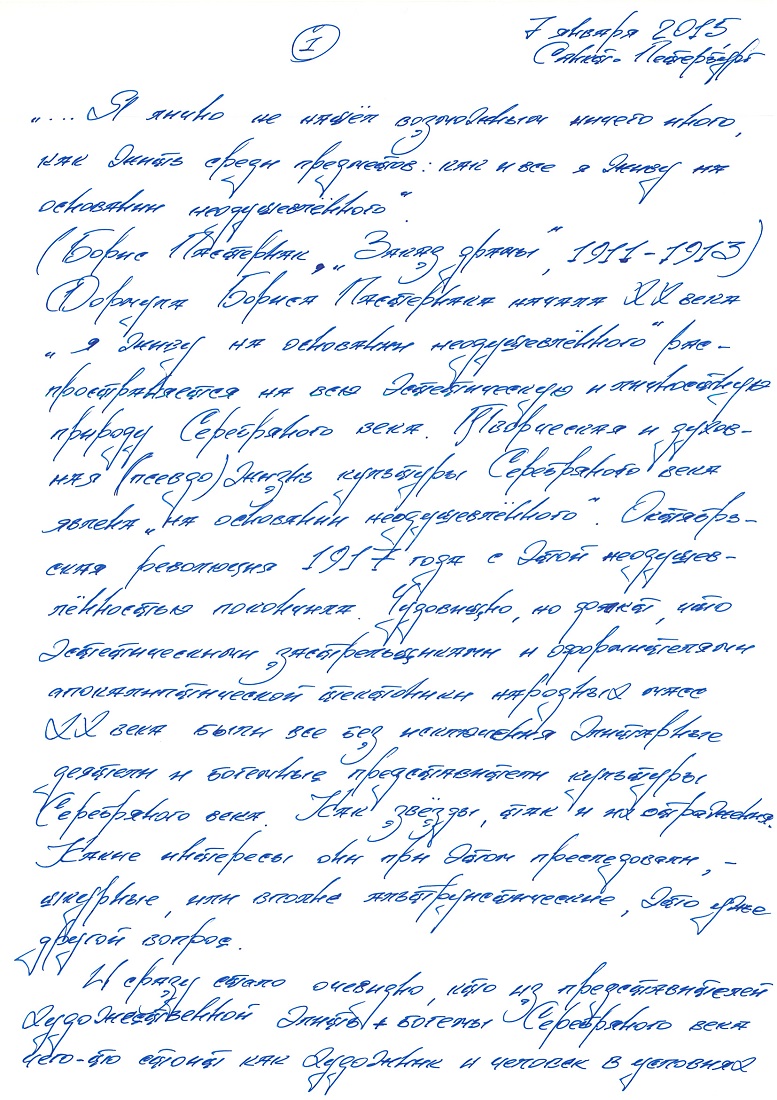 1
7 января 2015
Санкт-Петербург
„... Я лично не нашёл возможным ничего иного,
как жить среди предметов: как и все я живу на
основании неодушевлённого“.
(Борис Пастернак, „Заказ драмы“, 1911-1913)
Формула Бориса Пастернака начала XX века
„я живу на основании неодушевлённого“ рас-
пространяется на всю эстетическую и личностную
природу Серебряного века. Творческая и духов-
ная (псевдо)жизнь культуры Серебряного века
явлена „на основании неодушевлённого“. Октябрь-
ская революция 1917 года с этой неодушев-
лённостью покончила. Чудовищно, но факт, что
эстетическими застрельщиками и оформителями
апокалиптической тектоники народных масс
XX века были все без исключения элитарные
деятели и богемные представители культуры
Серебряного века. Как звёзды, так и их отражения.
Какие интересы они при этом преследовали, -
шкурные, или вполне альтруистические, это уже
другой вопрос.
И сразу стало очевидно, кто из представителей
художественной элиты + богемы Серебряного века
чего-то стоит как художник и человек в условиях